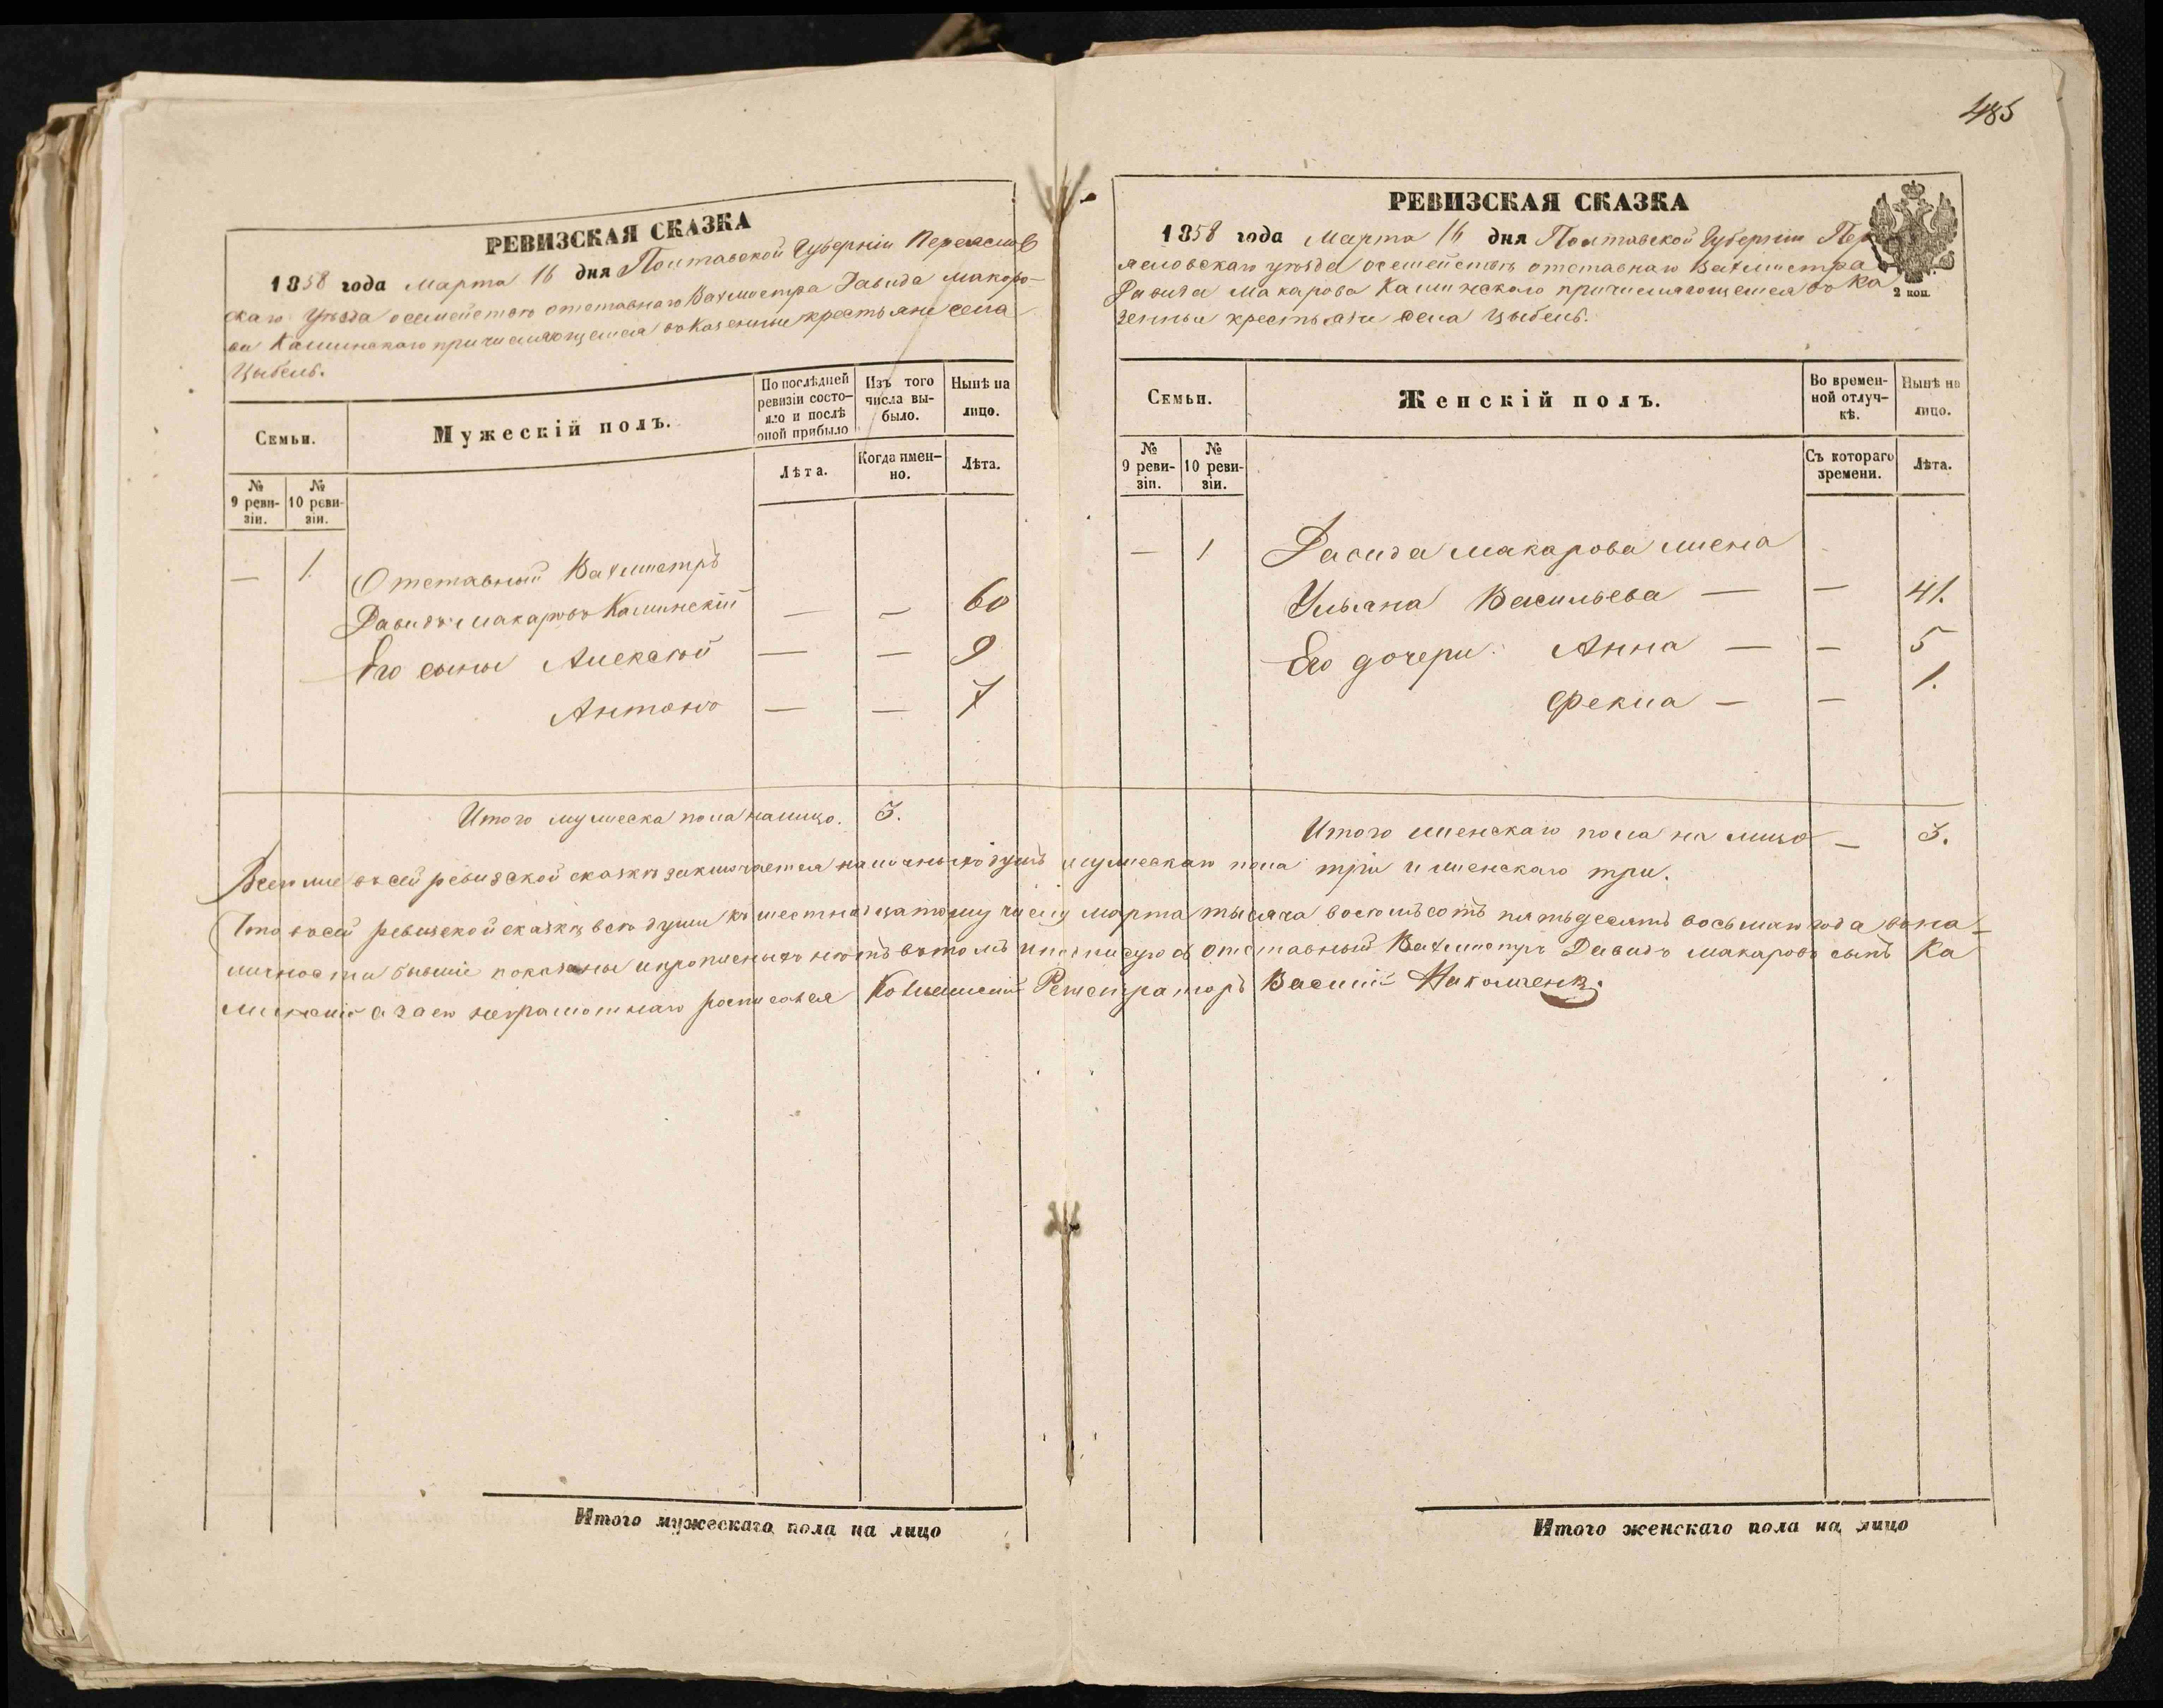 485
РЕВИЗСКАЯ СКАЗКА
1858 года Марта 16 дня Полтавской Губерніи Переяслов
скаго уѣзда о семействѣ отставнаго Вахмистра Давида Макаро-
ва Калинскаго причисляющемся въ Казенныи крестьяни села
Цыбель.
Семьи.
Мужескій полъ.
По послѣдней ревизіи состо-яло и послѣ оной прибыло
Изъ того числа вы-было.
Нынѣ на лицо.
Лѣта.
Когда имен-но.
Лѣта.
№ 9 реви-зіи.
№ 10 реви-зіи.
— 1. Отставный Вахмистръ
Давидъ Макаровъ Калинскій — — 60
Его сыны Алексѣй — — 9
Антонъ — — 7
Итого мужеска пола налицо. 3.
РЕВИЗСКАЯ СКАЗКА
1858 года Марта 16 дня Полтавской Губерніи Пер
яславскаго уѣзда о семействѣ отставнаго Вахмистра
Давида Макарова Калинскаго причисляющемся въ Ка
зенныи крестьяни села Цыбель.
2 коп.
Семьи.
Женскій полъ.
Во времен-ной отлуч-кѣ.
Нынѣ на лицо.
Съ котораго времени.
Лѣта.
№ 9 реви-зіи.
№ 10 реви-зіи.
— 1 Давида Макарова жена
Ульяна Васильева — — 41.
Его дочери: Анна — — 5
Фекла — — 1.
Итого женскаго пола на лицо — 3.
Всего же въ сей ревизской сказкѣ заключается наличныхъ душъ мужескаго пола три и женскаго три.
Что въ сей ревизской сказкѣ всѣ души къ шестнадцатому числу марта тысяча восемьсотъ пятьдесятъ восьмаго года въ на-
личности бывшіе показаны и прописныхъ нѣтъ въ томъ и подписуюсь отставный Вахмистръ Давидъ Макаровъ сынъ Ка
линскій а за его неграмотнаго росписался Регистраторъ Василій
Итого мужескаго пола на лицо
Итого женскаго пола на лицо